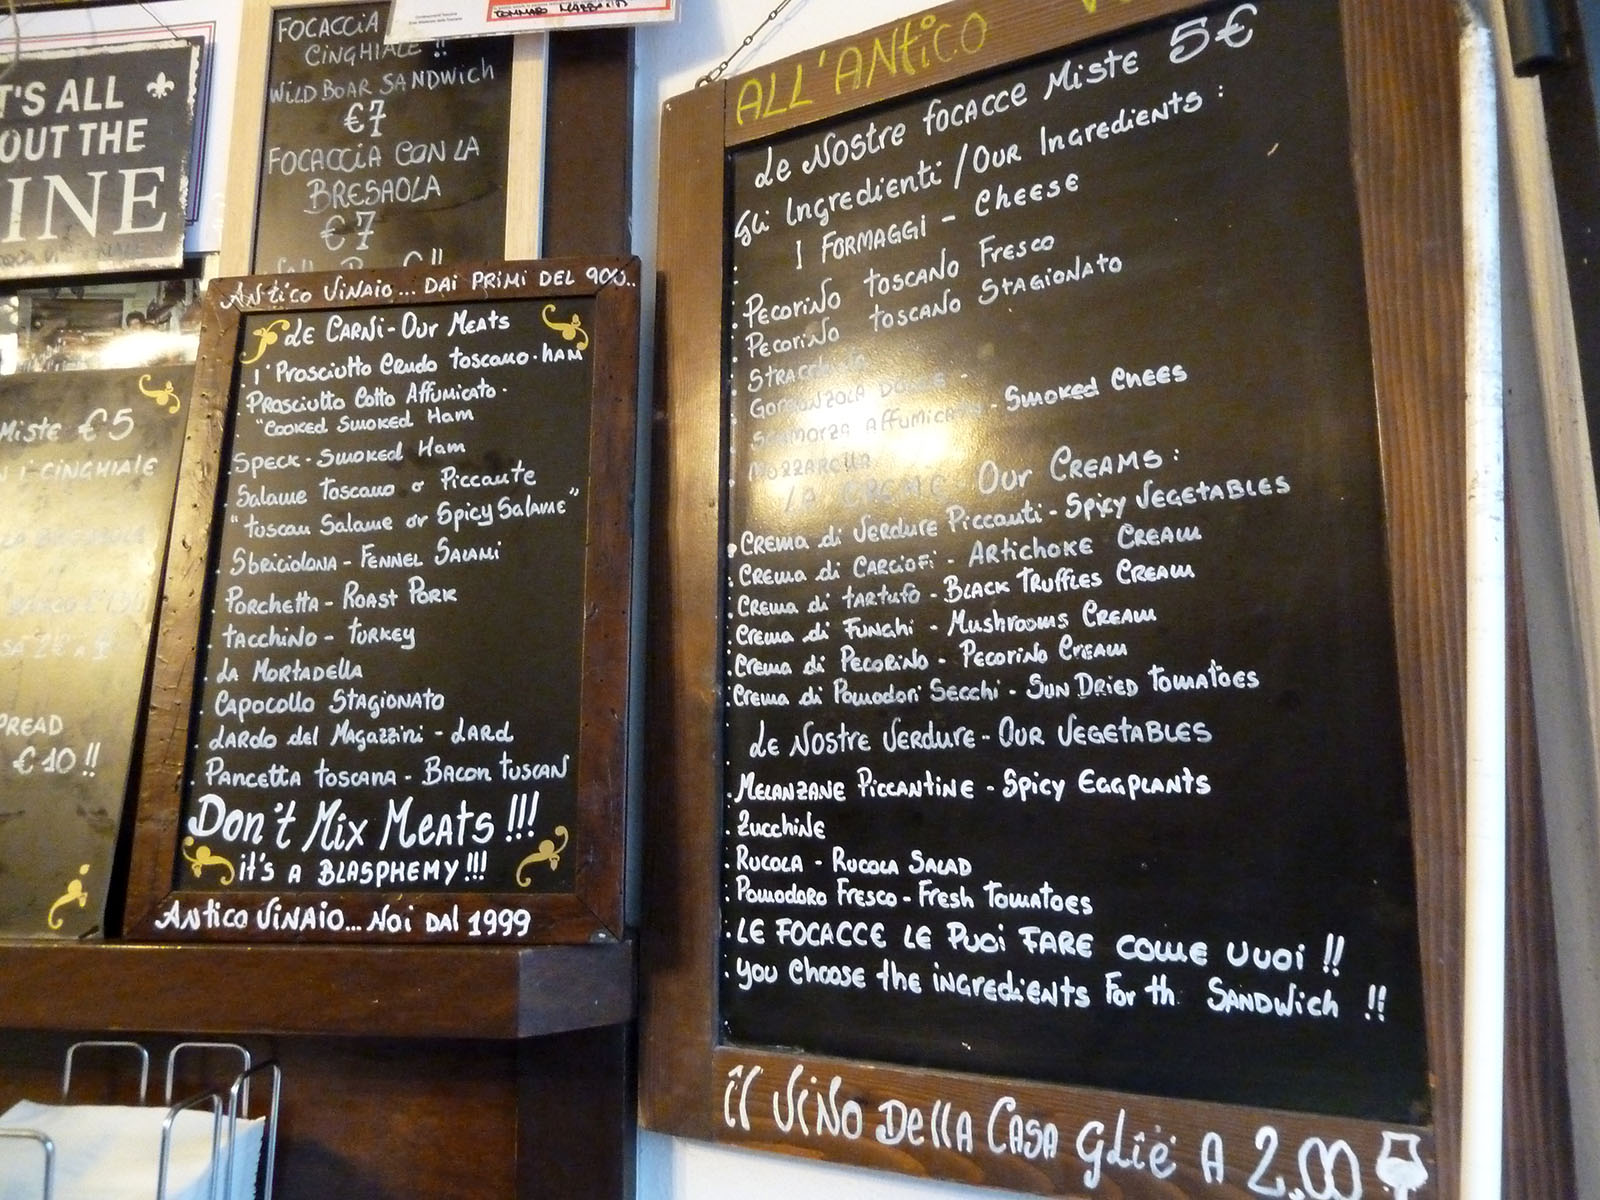 TOMMASO
T'S ALL
OUT THE
INE
FOCACCIA
CINGHIALE !!
WILD BOAR SANDWICH
€7
FOCACCIA CON LA
BRESAOLA
€7
MISTE €5
N I' CINGHIALE
PREAD
€10!!
ANTICO VINAIO... DAI PRIMI DEL 900..
LE CARNI - OUR MEATS
I' PROSCIUTTO CRUDO TOSCANO - HAM
PROSCIUTTO COTTO AFFUMICATO -
"COOKED SMOKED HAM
SPECK - SMOKED HAM
SALAME TOSCANO O PICCANTE
"TUSCAN SALAME OR SPICY SALAME"
SBRICIOLONA - FENNEL SALAMI
PORCHETTA - ROAST PORK
TACCHINO - TURKEY
LA MORTADELLA
CAPOCOLLO STAGIONATO
LARDO DEL MAGAZZINI - LARD
PANCETTA TOSCANA - BACON TUSCAN
DON'T MIX MEATS !!!
IT'S A BLASPHEMY !!!
ANTICO VINAIO... NOI DAL 1999
ALL'ANTICO
LE NOSTRE FOCACCE MISTE 5€
GLI INGREDIENTI / OUR INGREDIENTS :
I FORMAGGI - CHEESE
PECORINO TOSCANO FRESCO
PECORINO TOSCANO STAGIONATO
GORGONZOLA DOLCE -
SCAMORZA AFFUMICATA - SMOKED CHEES
MOZZARELLA
LA CREME OUR CREAMS :
CREMA DI VERDURE PICCANTI - SPICY VEGETABLES
CREMA DI CARCIOFI - ARTICHOKE CREAM
CREMA DI TARTUFO - BLACK TRUFFLES CREAM
CREMA DI FUNGHI - MUSHROOMS CREAM
CREMA DI PECORINO - PECORINO CREAM
CREMA DI POMODORI SECCHI - SUN DRIED TOMATOES
LE NOSTRE VERDURE - OUR VEGETABLES
MELANZANE PICCANTINE - SPICY EGGPLANTS
ZUCCHINE
RUCOLA - RUCOLA SALAD
POMODORO FRESCO - FRESH TOMATOES
LE FOCACCE LE PUOI FARE COME VUOI !!
YOU CHOOSE THE INGREDIENTS FOR TH SANDWICH !!
IL VINO DELLA CASA GLIÈ A 2,00